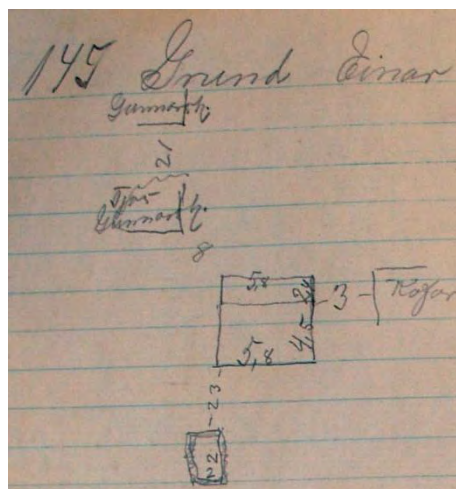 145 Grund Einar
Gunnarsh.
21
Fjós
Gunnarsh.
8
5,8 2,4
3 Kofar
5,8 4,5
23
22